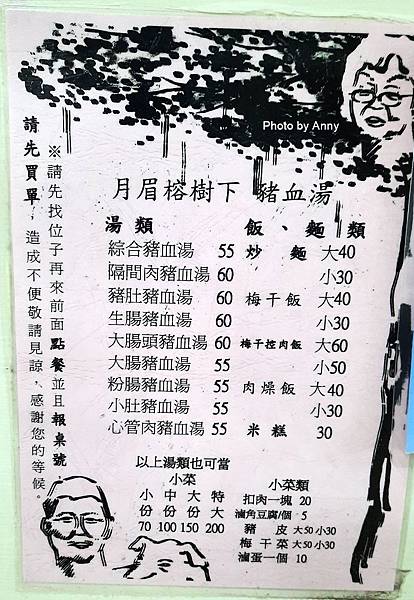 Photo by Anny
請先買單，造成不便敬請見諒、感謝您的等候。
※請先找位子再來前面點餐並且報桌號
月眉榕樹下 豬血湯
湯類 飯、麵類
綜合豬血湯 55 炒麵 大40
隔間肉豬血湯 60 小30
豬肚豬血湯 60 梅干飯 大40
生腸豬血湯 60 小30
大腸頭豬血湯 60 梅干控肉飯 大60
大腸豬血湯 55 小50
粉腸豬血湯 55 肉燥飯 大40
小肚豬血湯 55 小30
心管肉豬血湯 55 米糕 30
以上湯類也可當
小菜
小份 70
中份 100
大份 150
特大 200
小菜類
扣肉一塊 20
滷角豆腐/個 5
豬皮 大50 小30
梅干菜 大50 小30
滷蛋一個 10